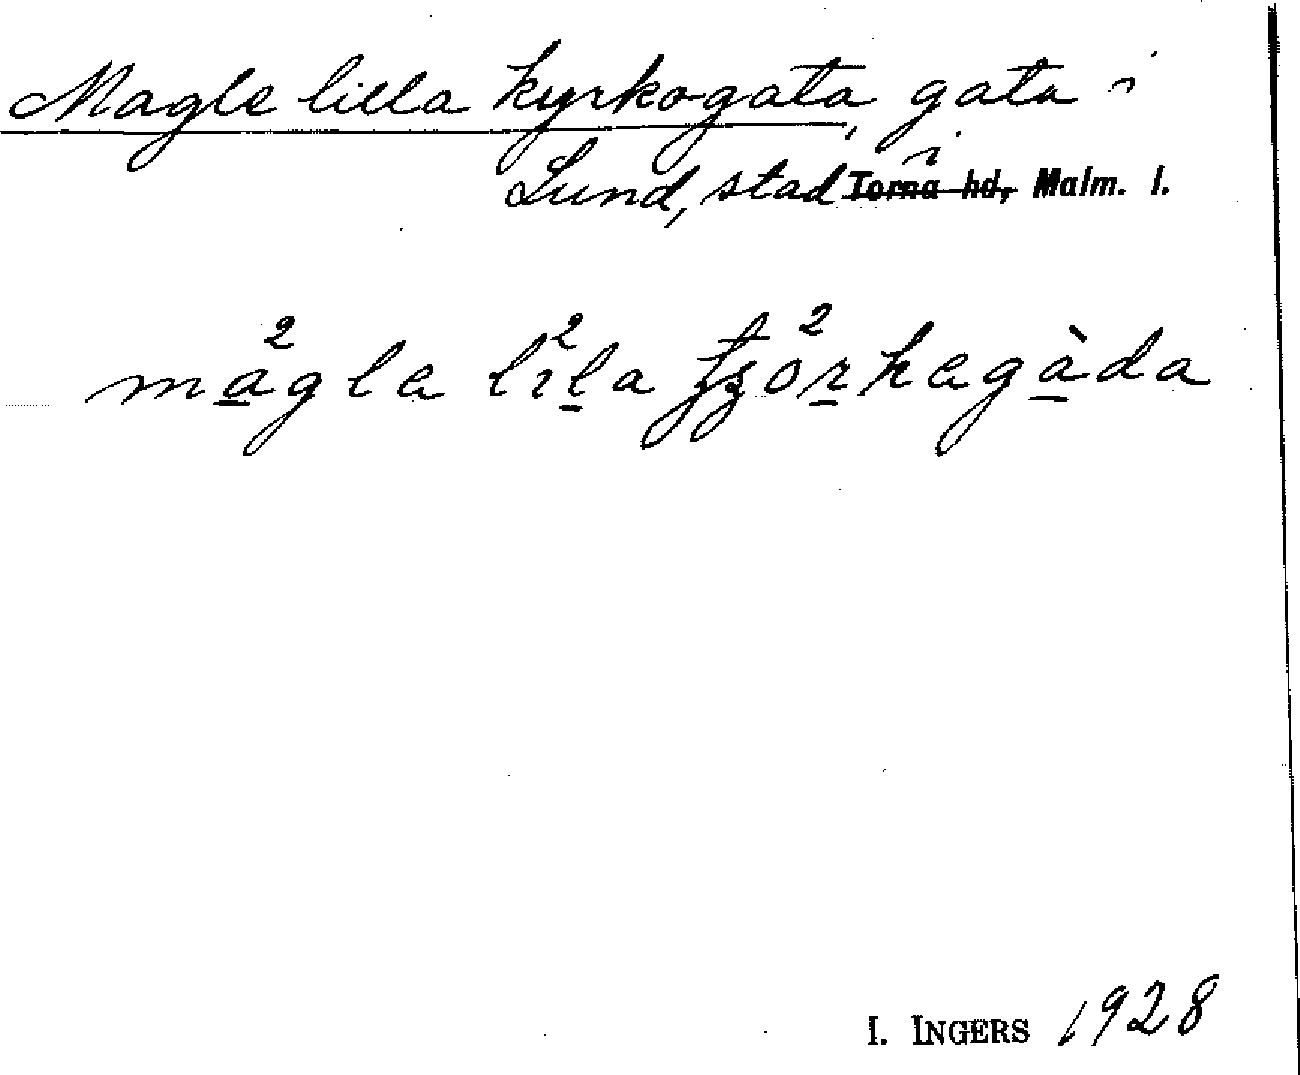 Magle lilla kyrkogata, gata i
Lund, stad i ~~Torna hd,~~ Malm. l.
ma̲²gle li²l̲a tʃʒo²r̲kegà̲da
I. INGERS 1928